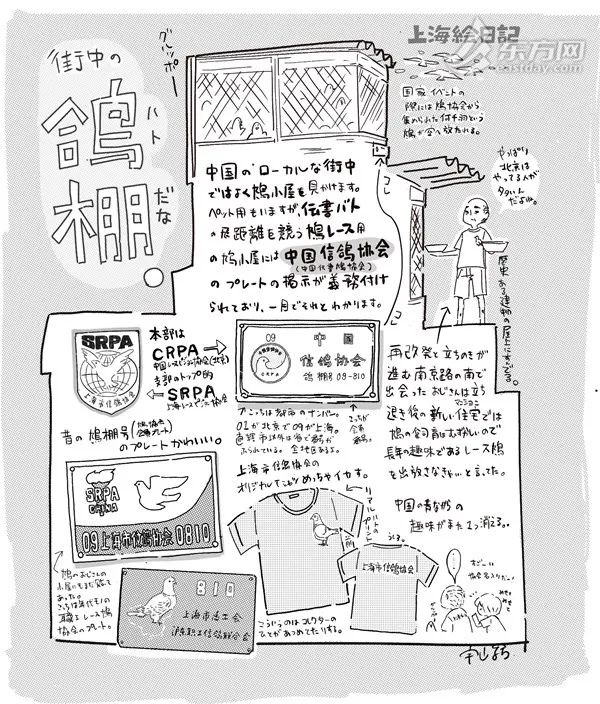 上海絵日記
东方网
eastday.com
街中の
鴿
ハト
棚
だな
グルッポー
国家イベントの
際には鳩協会から
集められた何千羽という
鳩が空へ放たれる。
やっぱり
北京は
やってる人が
多いん
だよね。
コレ
歴史ある建物の屋上にもある。
中国のローカルな街中
ではよく鳩小屋を見かけます。
ペット用もいますが、伝書バト
の飛距離を競う鳩レース用
の鳩小屋には中国信鴿協会
(中国伝書鳩協会)
のプレートの掲示が義務付け
られており、一目でそれとわかります。
SRPA
上海市信鴿協会
本部は
CRPA
支部のトップ的
SRPA
09 中国
信鴿協会
CRPA
鴿棚册09-810
こっちは都市のナンバー。
01が北京で09が上海。
直轄市以外は省で番号が
ふられている。全社団あるよ。
こっちが
会員
番号。
再改発で立ちのきが
進む南京路の南で
出会ったおじさんは立ち
退き後の新しい住宅では
マンション
鳩の飼育はむずかしいので
長年の趣味であるレース鳩
を出放さなきゃいと言ってた。
中国の昔ながらの
趣味がまた1つ消える。
昔の鳩棚号
のプレートかわいい。
SRPA
CHINA
09上海市信鴿協会0810
鳩のおじさんの
小屋にもまだ飾って
あった。
レース鳩
協会のプレート。
810
上海市总工会
沪东职工信鸽联合会
上海市信鴿協会の
オリジナルTシャツめっちゃイカす。
リアルハトのプリント
上海市信鴿協会
うしろ。
こういうのはコレクターの
ひとがあつめてたりする。
すごーい
協会名入りだー!